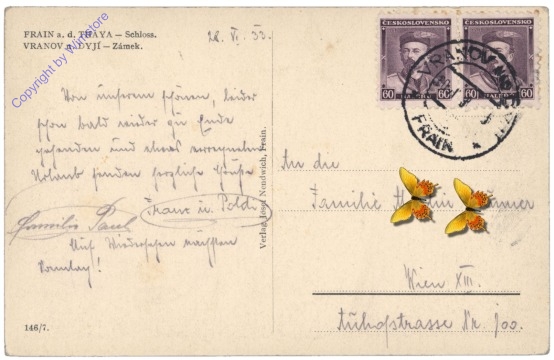 FRAIN a. d. THAYA — Schloss.
VRANOV n. DYJÍ — Zámek.
Copyright by Winstore
28. VI. 33.
Von unserem schönen, leider
schon bald wieder zu Ende
gehenden und etwas verregneten
Urlaub senden herzliche Grüße
Franz u. Poldi
Familie
Auf Wiedersehen nächsten
Sonntag!
146/7.
Verlag Josef Nendwich, Frain.
ČESKOSLOVENSKO
60 HALÉŘŮ 60
ČESKOSLOVENSKO
60 HALÉŘŮ 60
VRANOV
FRAIN
An die
Familie
Wien XIII.
Nr. 300.